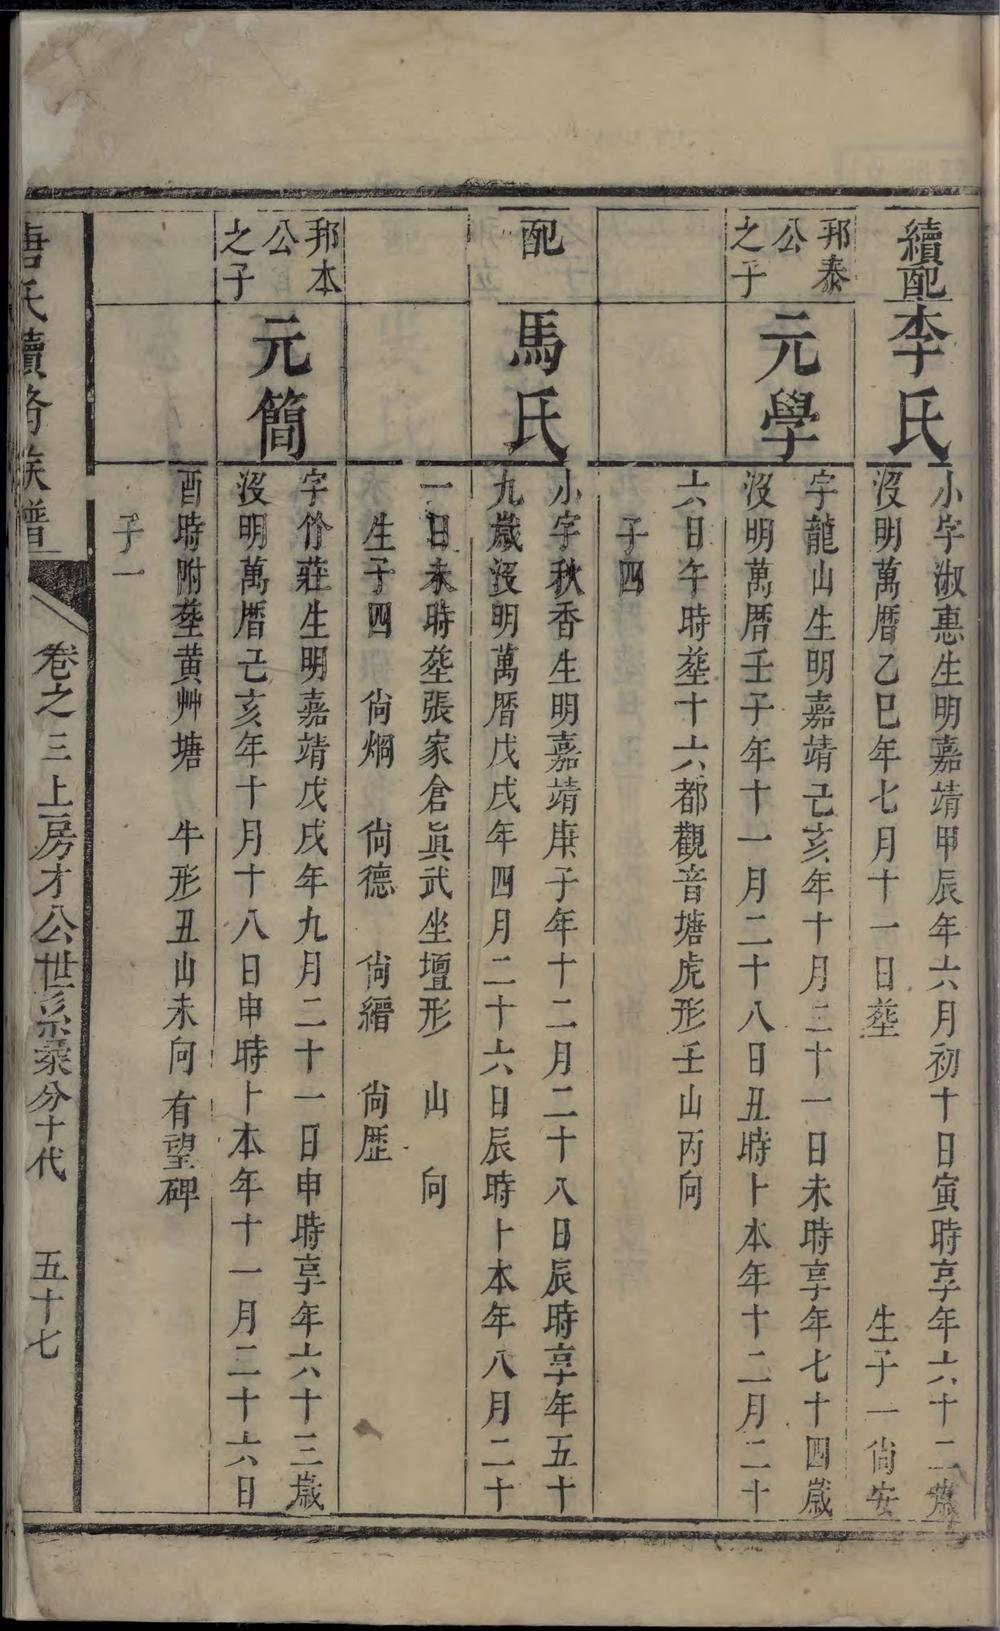 續配李氏
小字淑惠生明嘉靖甲辰年六月初十日寅時享年六十二歲
沒明萬曆乙巳年七月十一日塟 生子一尙安
邦泰
公
之子
元學
字龍山生明嘉靖己亥年十月二十一日未時享年七十四歲
沒明萬曆壬子年十一月二十八日丑時卜本年十二月二十
六日午時塟十六都觀音塘虎形壬山丙向
子四
配
馬氏
小字秋香生明嘉靖庚子年十二月二十八日辰時享年五十
九歲沒明萬曆戊戌年四月二十六日辰時卜本年八月二十
一日未時塟張家倉眞武坐壇形 山 向
生子四 尙烱 尙德 尙縉 尙歷
邦本
公
之子
元簡
字竹莊生明嘉靖戊戌年九月二十一日申時享年六十三歲
沒明萬曆己亥年十月十八日申時卜本年十一月二十六日
酉時附塟黄艸塘 牛形丑山未向有望碑
子一
唐氏續脩族譜 卷之三上房才公世系彚分十代 五十七